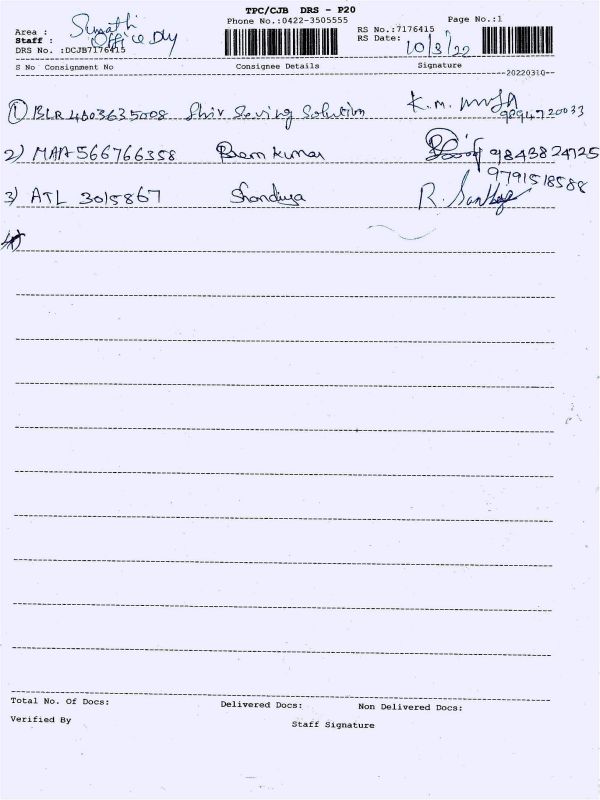 TPC/CJB DRS - P20
Phone No.:0422-3505555 Page No.:1
Area : Swathi RS No.:7176415
Staff : Office Dly RS Date: 10/3/22
DRS No. :DCJB7176415
S No Consignment No Consignee Details Signature
--20220310--
① BLR4003635008 Shiv Seving Solution K.m. 9894720033
2) MAA566766358 Prem kumar 9843824725
3) ATL 3015867 9791518588
R. Santhosh
Total No. Of Docs: Delivered Docs: Non Delivered Docs:
Verified By Staff Signature